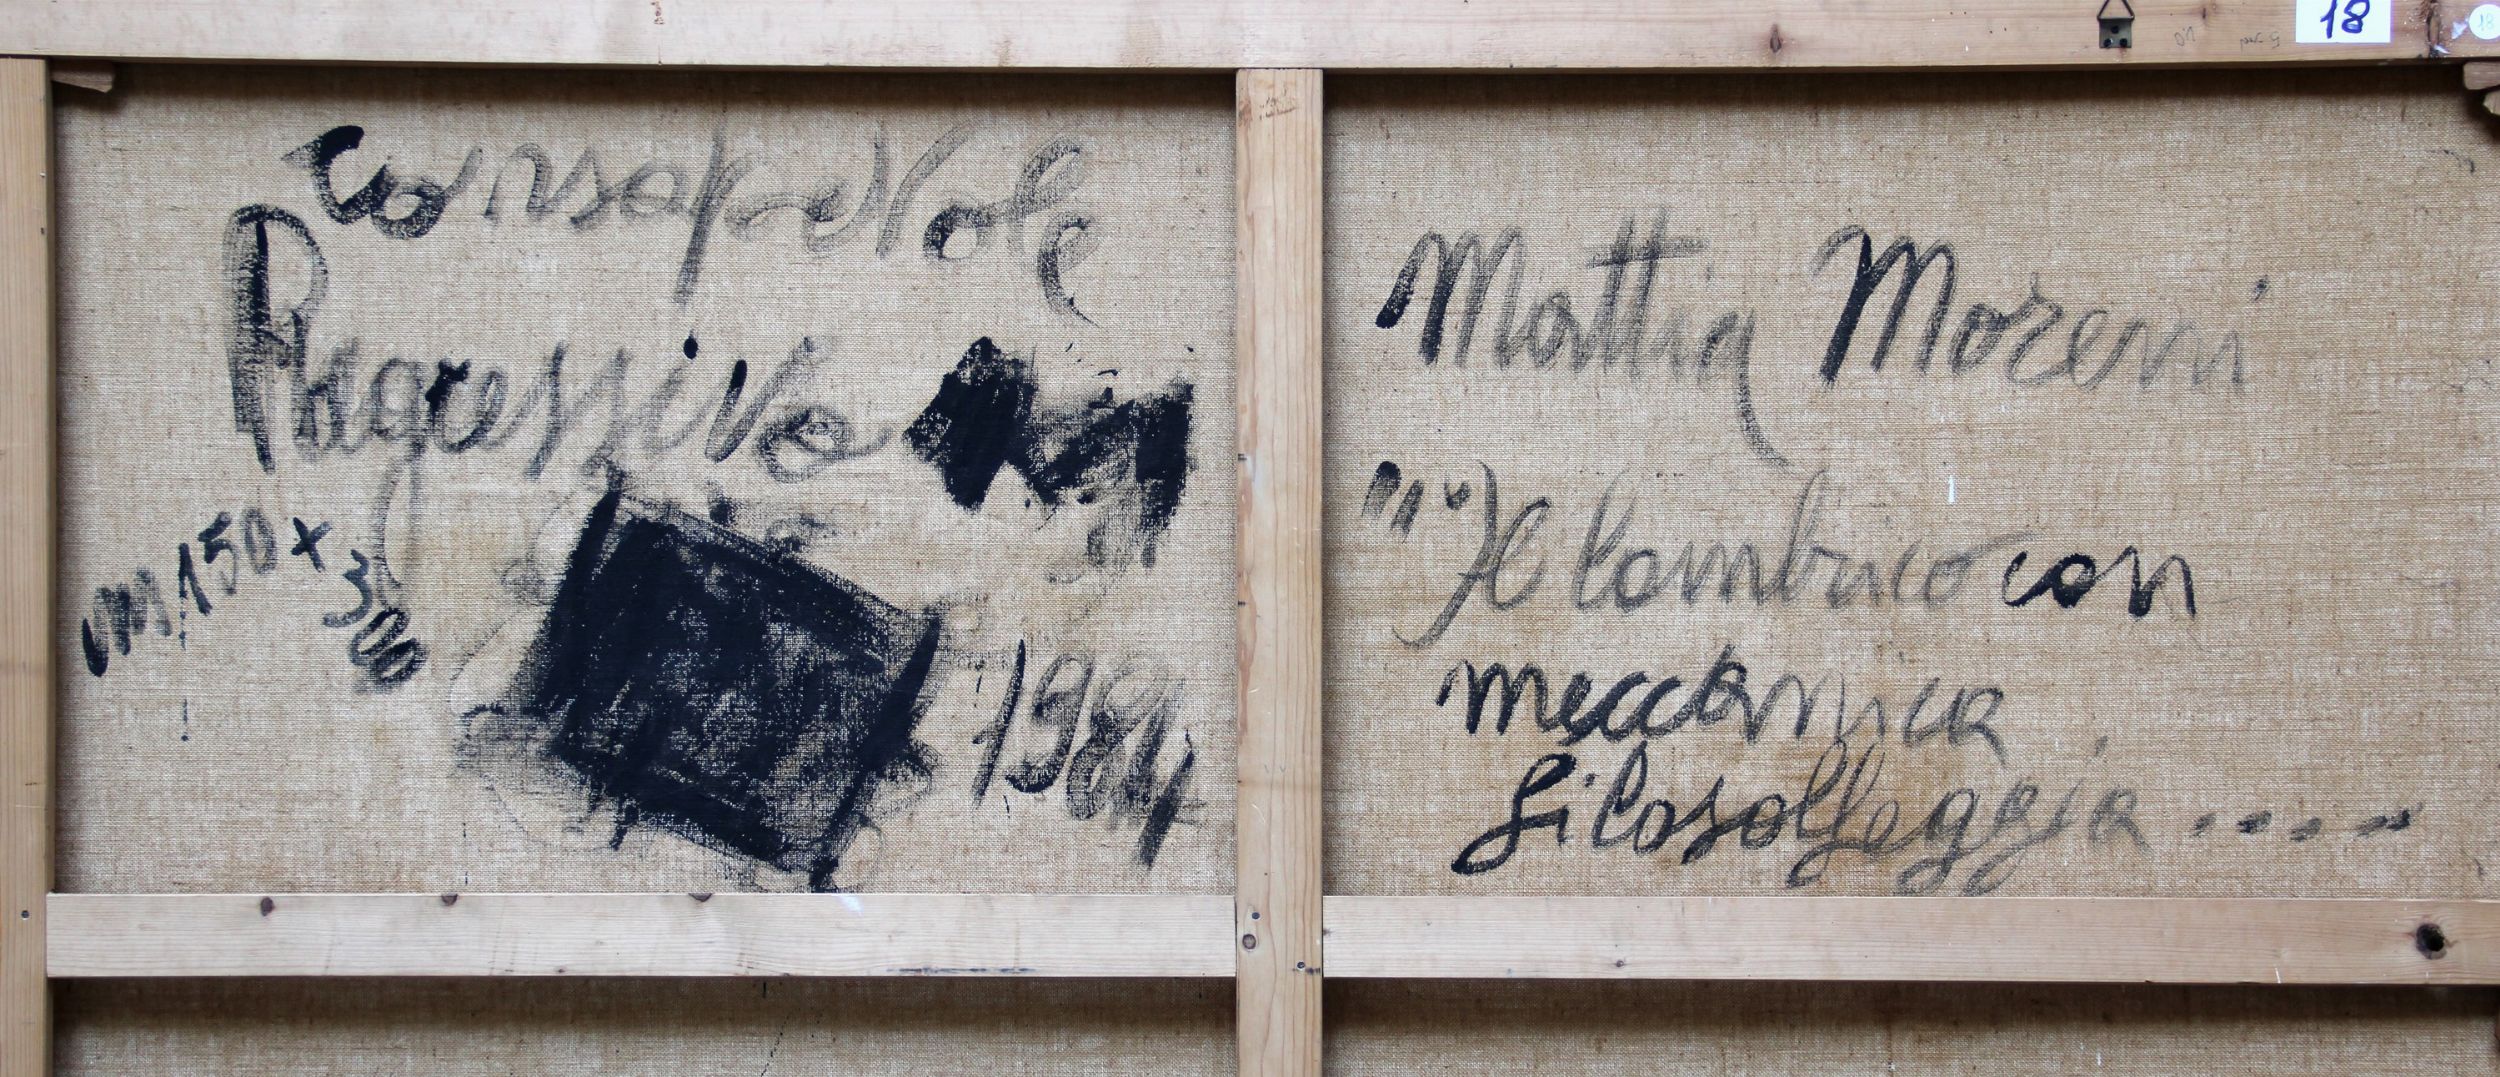 18
18
consapevole
Regressivo
cm 150 x
300
1984
Mattia Moreni
"Il lombrico con
meccanica
filosoffeggia .....